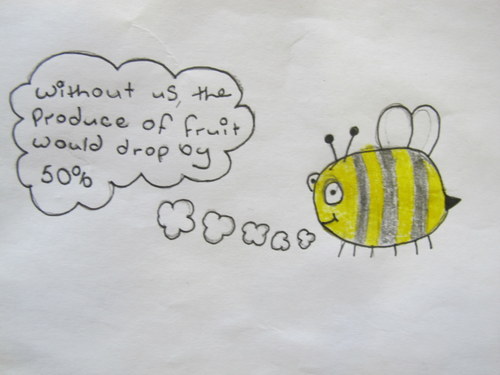 without us, the
produce of fruit
would drop by
50%